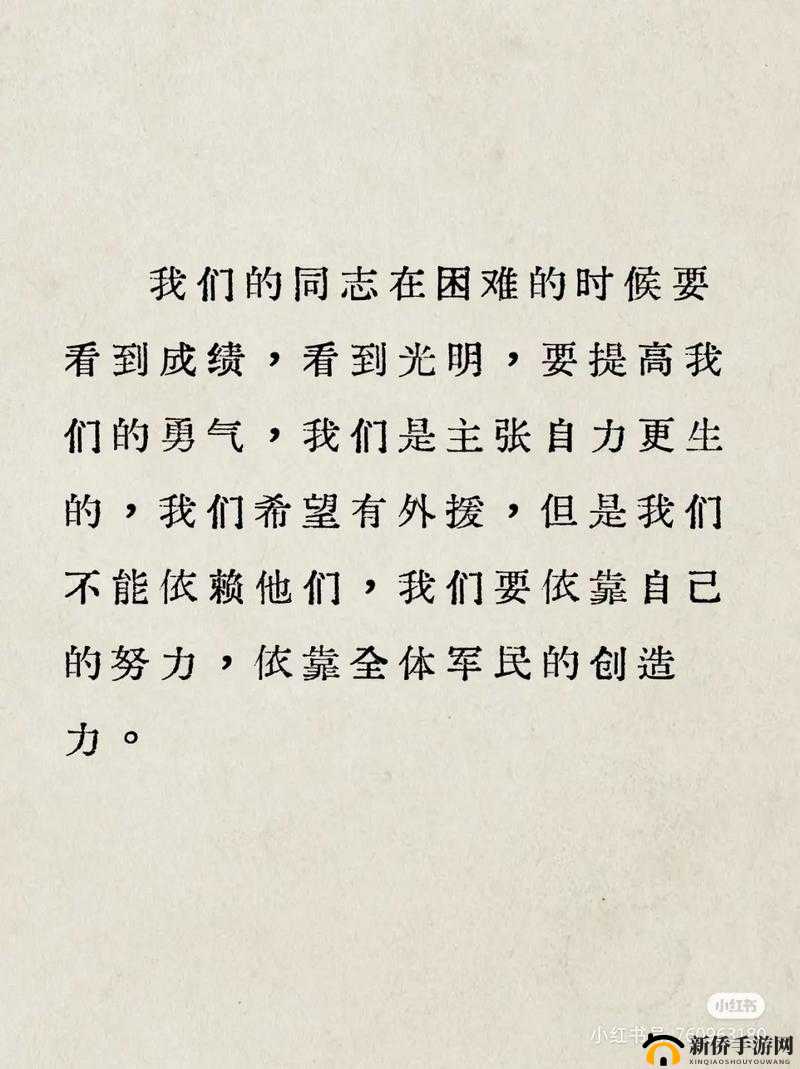 我们的同志在困难的时候要
看到成绩，看到光明，要提高我
们的勇气，我们是主张自力更生
的，我们希望有外援，但是我们
不能依赖他们，我们要依靠自己
的努力，依靠全体军民的创造
力。
小红书
小红书号
新侨手游网
XINQIAOSHOUYOUWANG